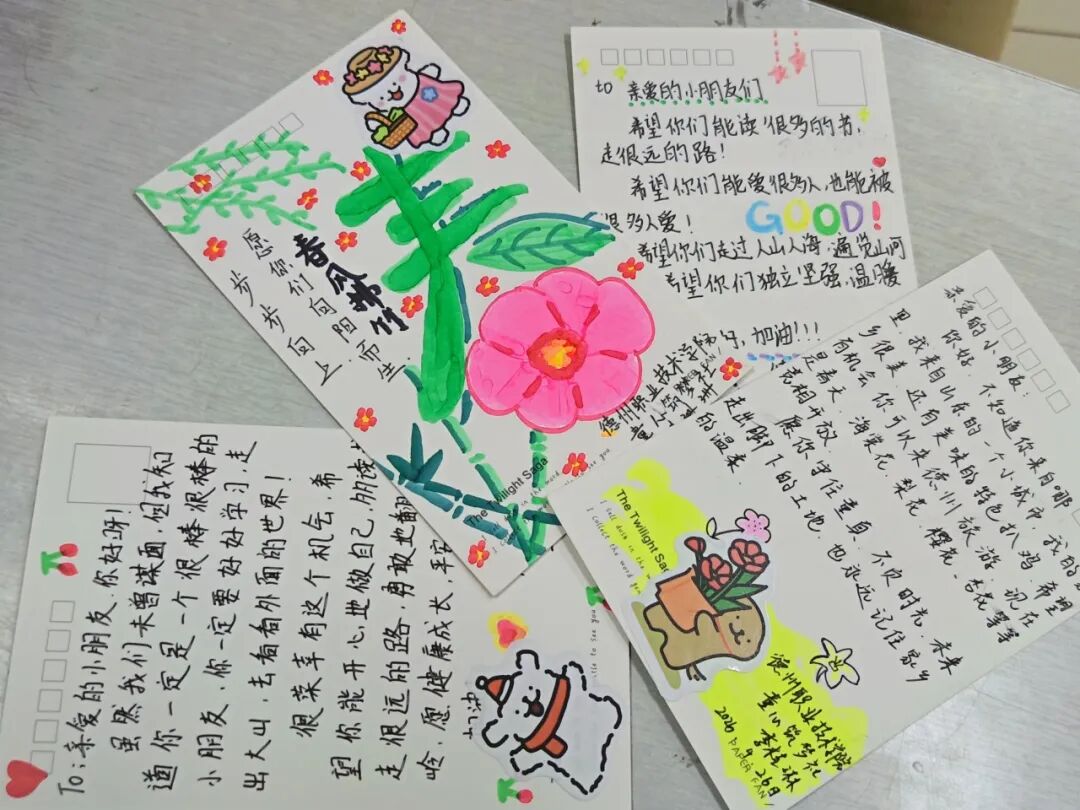 愿你们向阳而生
步步向上
春风拂竹
The Twilight Saga
to 亲爱的小朋友们
希望你们能读很多的书,
走很远的路!
希望你们能爱很多人,也能被
很多人爱!
GOOD!
希望你们走过人山人海,遍览山河
希望你们独立坚强,温暖
加油!!!
德州职业技术学院
童心筑梦社
亲爱的小朋友:
你好,不知道你来自哪
里,我来自山东的一个小城市,我的
乡很美,还有美味的特色扒鸡,希望
有机会你可以来德州旅游,现在
是春天,海棠花、梨花、樱花、杏花等等
竞相开放,
愿你守住童真,不负时光,未来
走出脚下的土地,也永远记住家乡
的温柔
The Twilight Saga
I fall dush in the
I Collect the word
德州职业技术学院
童心筑梦社
2026
4
26日
PAPER FAN
To:亲爱的小朋友,你好呀!
虽然我们未曾谋面,但我知
道你一定是一个很棒很棒的
小朋友,你一定要好好学习,走
出大山,去看看外面的世界!
很荣幸有这个机会,希
望你能开心地做自己,多读
走很远的路,勇敢地翻
岭,愿健康成长,平安
加油